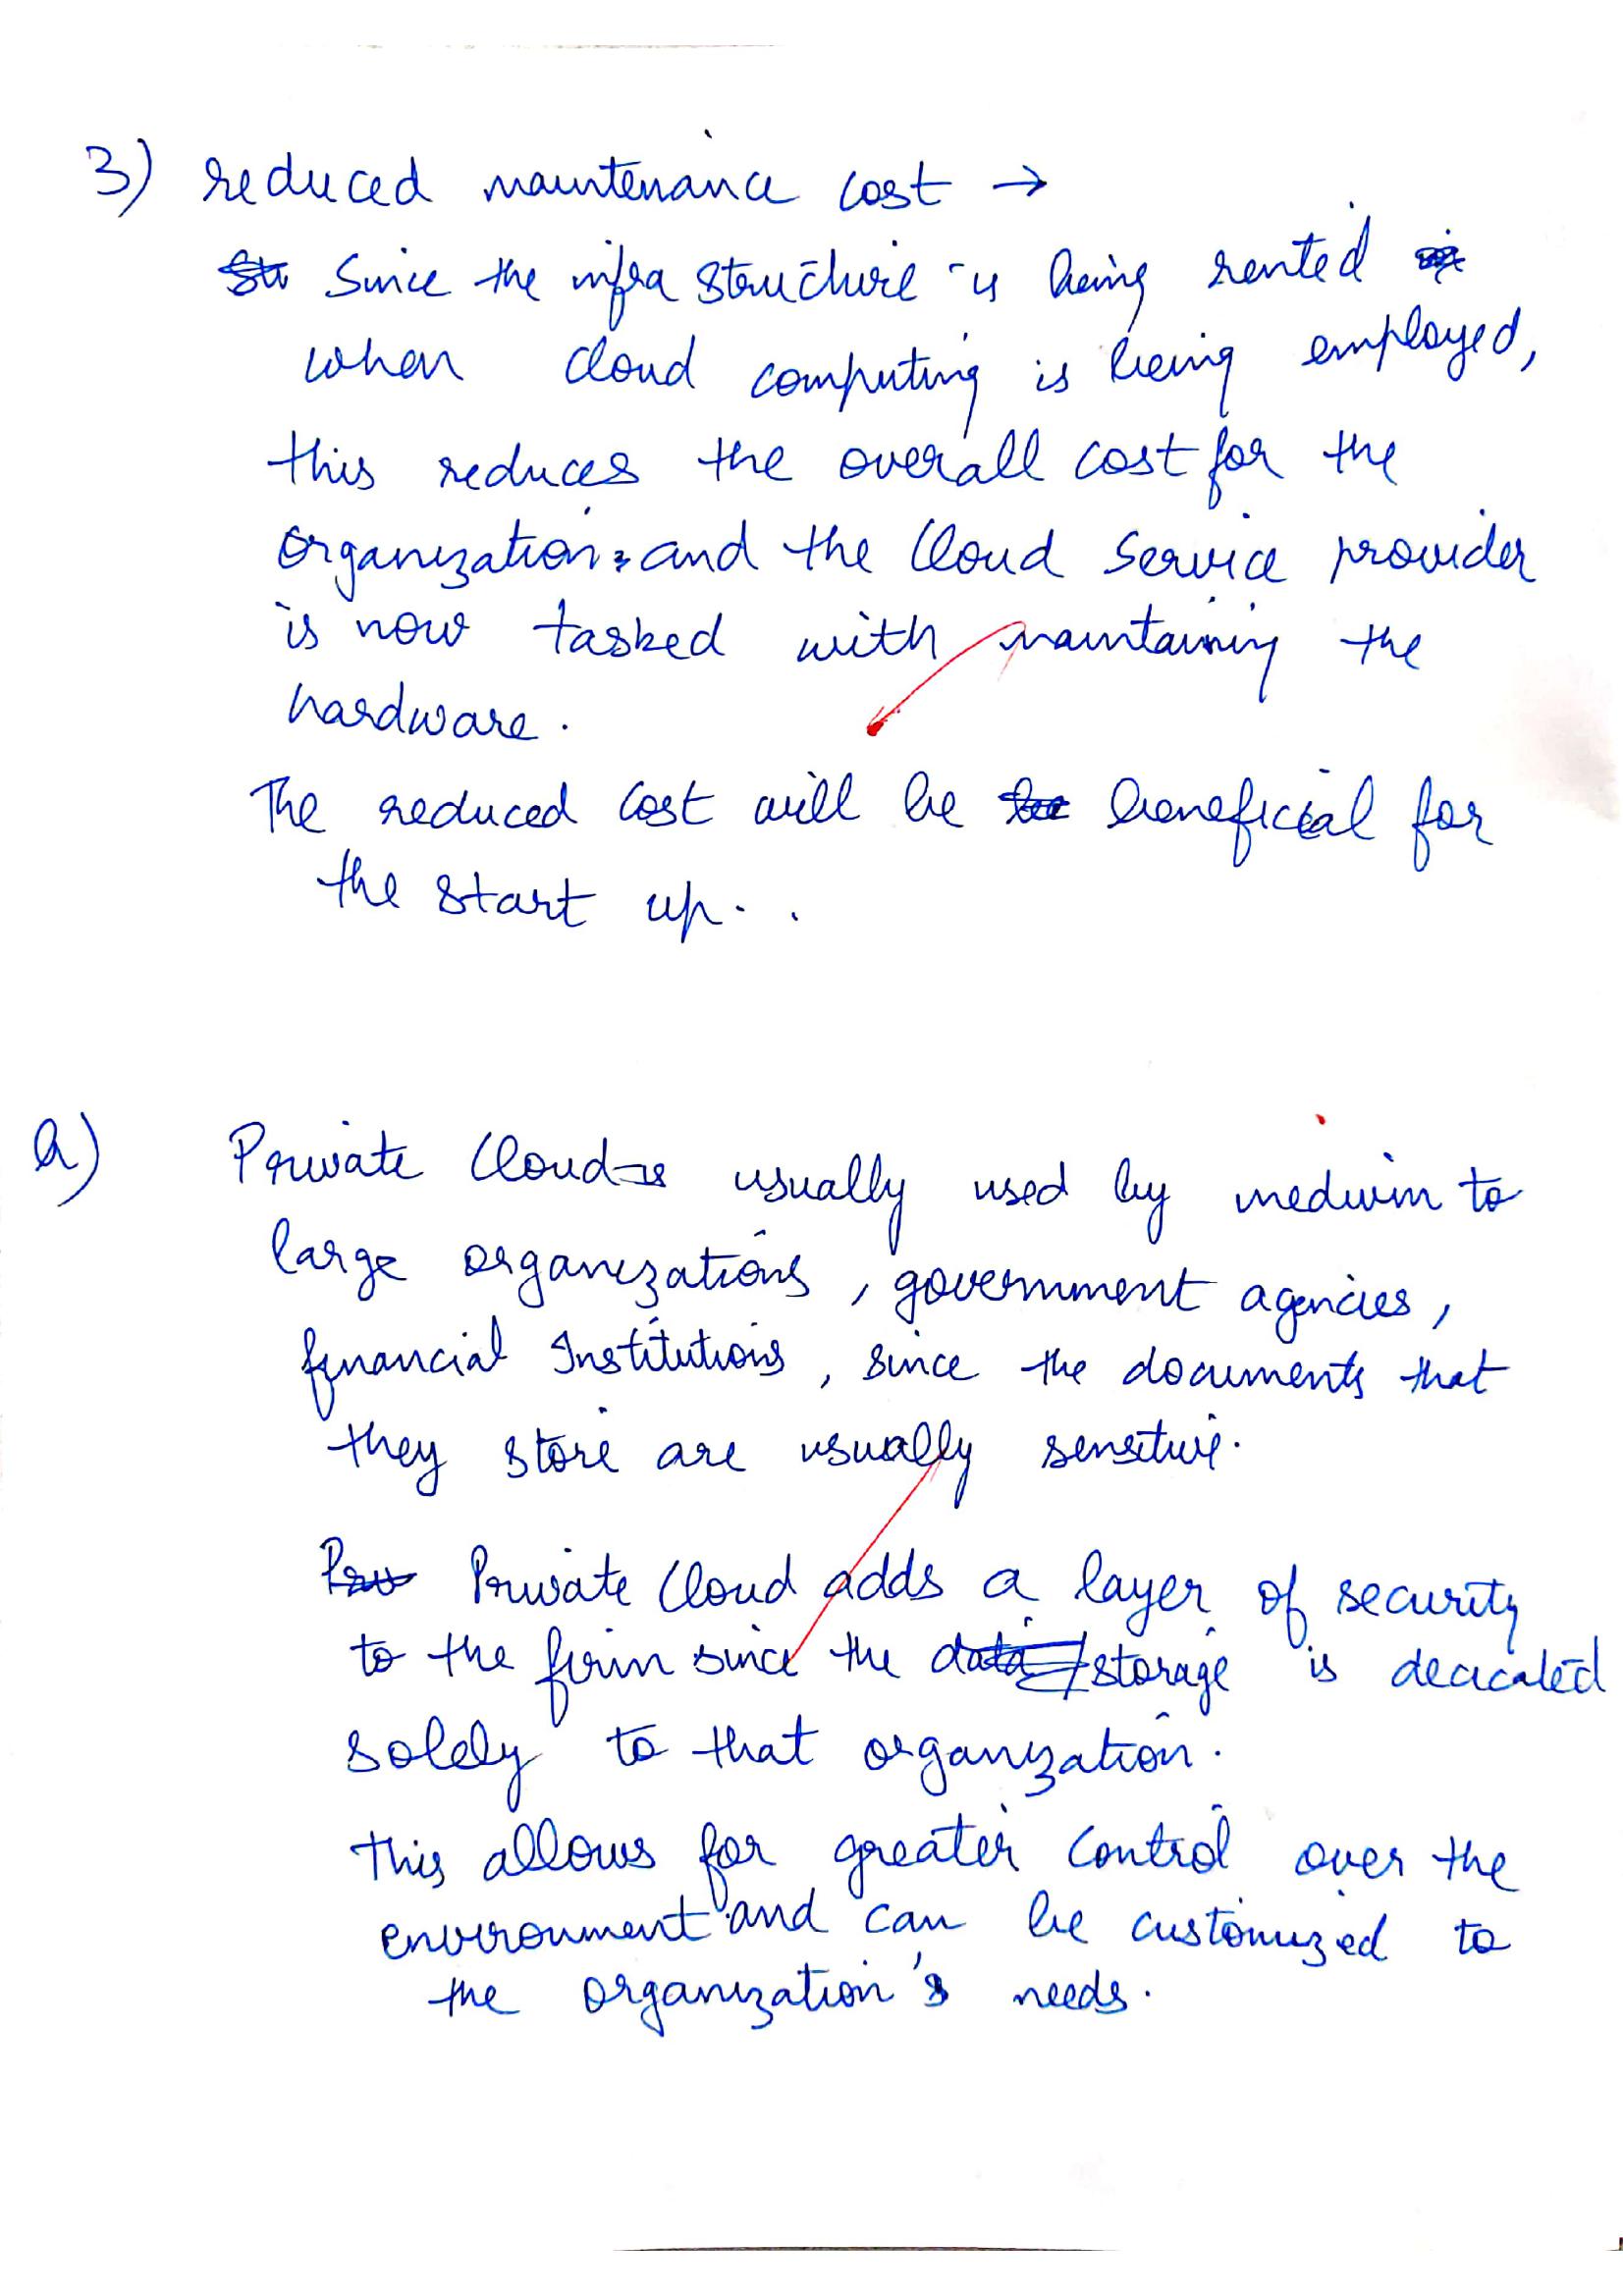 3) reduced maintenance cost →
Since the infra structure is being rented
when cloud computing is being employed,
this reduces the overall cost for the
Organization and the Cloud Service provider
is now tasked with maintaining the
hardware.
The reduced cost will be beneficial for
the start up.
a) Private Cloud usually used by medium to
large organizations, government agencies,
financial Institutions, since the documents that
they store are usually sensitive.
Private Cloud adds a layer of security
to the firm since the storage is decicated
solely to that organization.
This allows for greater control over the
environment and can be customized to
the organization's needs.